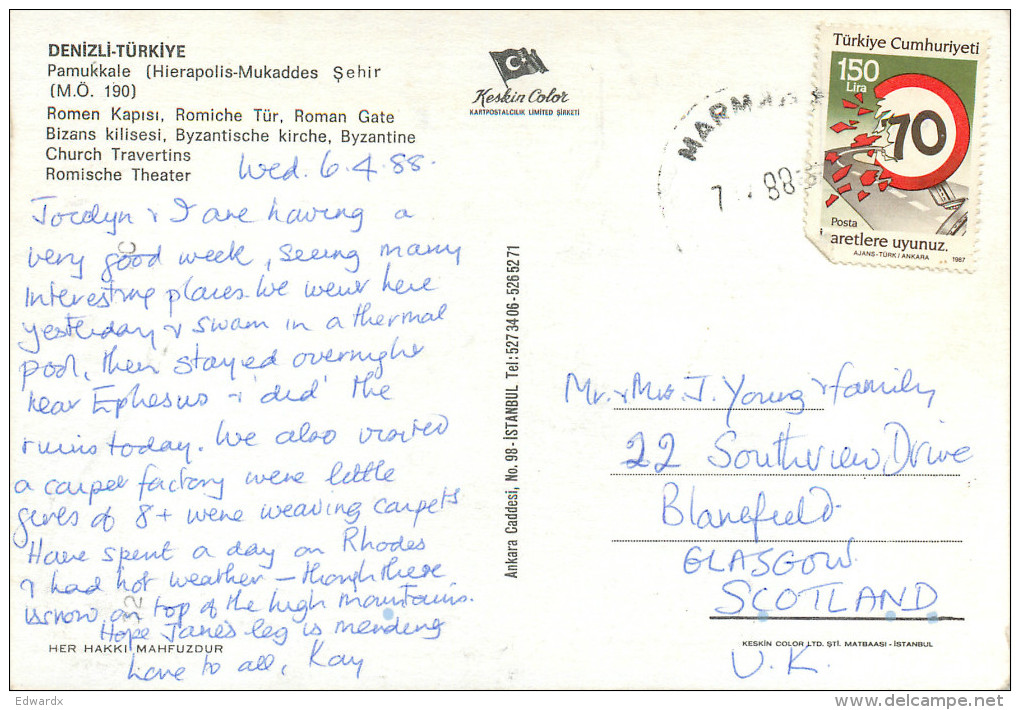 DENİZLİ-TÜRKİYE
Pamukkale (Hierapolis-Mukaddes Şehir
(M.Ö. 190)
Romen Kapısı, Romiche Tür, Roman Gate
Bizans kilisesi, Byzantische kirche, Byzantine
Church Travertins
Romische Theater
Keskin Color
KARTPOSTALCILIK LIMITED ŞİRKETİ
Türkiye Cumhuriyeti
150
Lira
70
Posta
aretlere uyunuz.
AJANS-TÜRK/ANKARA 1987
MARMA
7 . 88
Wed. 6.4.88.
Jocelyn & I are having a
very good week, seeing many
interesting places. We went here
yesterday & swam in a thermal
pool, then stayed overnight
near Ephesus & 'did' the
ruins today. We also visited
a carpet factory were little
girls of 8+ were weaving carpets
Have spent a day on Rhodes
& had hot weather – though there
is snow on top of the high mountains.
Hope Jane's leg is mending
Love to all, Kay
HER HAKKI MAHFUZDUR
Ankara Caddesi, No. 98-İSTANBUL Tel: 5273406-5265271
Mr. & Mrs. J. Young & family
22 Southview Drive
Blanefield
GLASGOW
SCOTLAND
U.K.
KESKİN COLOR LTD. ŞTİ. MATBAASI - İSTANBUL
Edwardx
delcampe.net